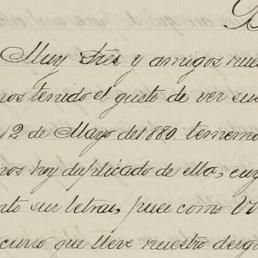 Muy Sres y amigos nues
mos tenido el gusto de ver su
12 de Mayo del 880. tenemo
mos hoy duplicado de ella, cuy
nto sus letras, pues como V
curso que lleve nuestro desg